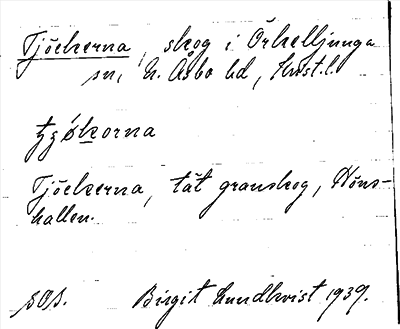 Tjöckerna, skog i Örkelljunga
sn, N. Åsbo hd, Krist.l.
tjökorna
Tjöckerna, tät granskog, Höns-
hallen.
sOs. Birgit Lundkvist 1939.